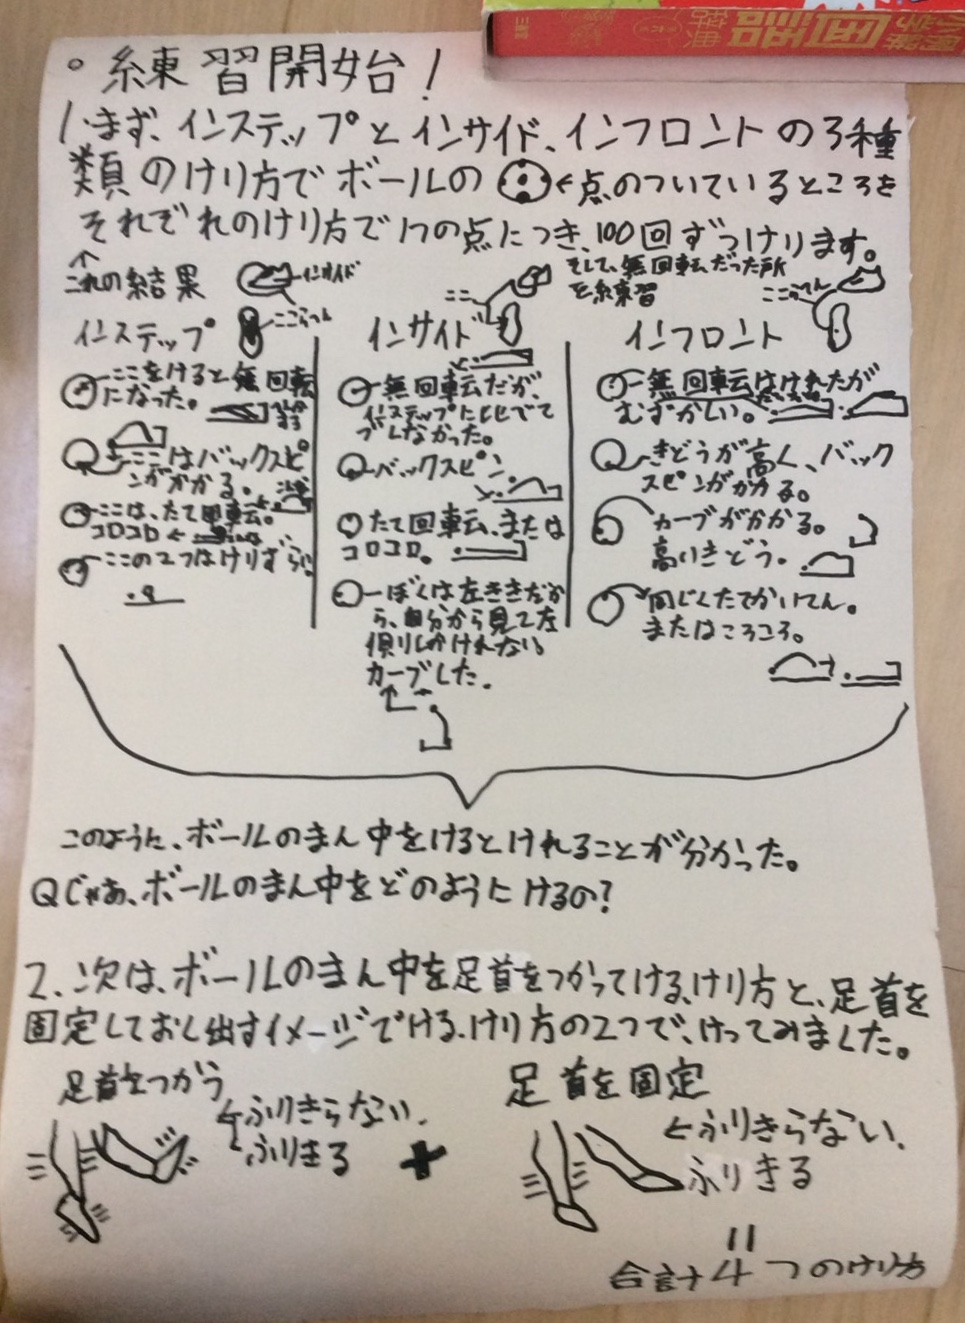 。練習開始！
1.まず、インステップとインサイド、インフロントの3種
類のけり方でボールの ←点のついているところを
それぞれのけり方で1つの点につき、100回ずつけります。
そして、無回転だった所
を練習
↑
これの結果
インサイド
ここらへん
ここ
ここらへん
インステップ
ここをけると無回転
になった。
ここはバックスピ
ンがかかる。
ここは、たて回転。
コロコロ←
ここの2つはけりずらい
インサイド
無回転だが、
インステップに比べて
ブレなかった。
バックスピン
たて回転、または
コロコロ。
ぼくは左ききだか
ら、自分から見て左
側りしかけれない
カーブした.
インフロント
無回転はけれたが
むずかしい。
きどうが高く、バック
スピンがかかる。
カーブがかかる。
高いきどう。
同じくたてかいてん。
またはころころ。
このように、ボールのまん中をけるとけれることが分かった。
Qじゃあ、ボールのまん中をどのようにけるの?
2、次は、ボールのまん中を足首をつかってける、けり方と、足首を
固定しておし出すイメージでける、けり方の2つで、けってみました。
足首をつかう
←ふりきらない.
ふりきる
+
足首を固定
←ふりきらない、
ふりきる
||
合計4つのけり方